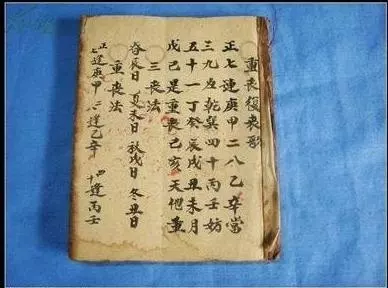 重喪復喪歌
正七連庚甲二八乙辛當
三九反乾巽四十丙壬妨
五十一丁癸辰戌丑未月
戊己是重喪己亥天地重
三喪法
春辰日 夏未日 秋戌日 冬丑日
重喪法
正七逢庚甲 二八逢乙辛 四十逢丙壬